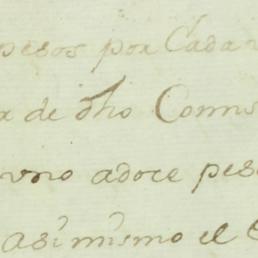 pesos por Cada
a de dho Comis
uno adoce pes
asi mismo el